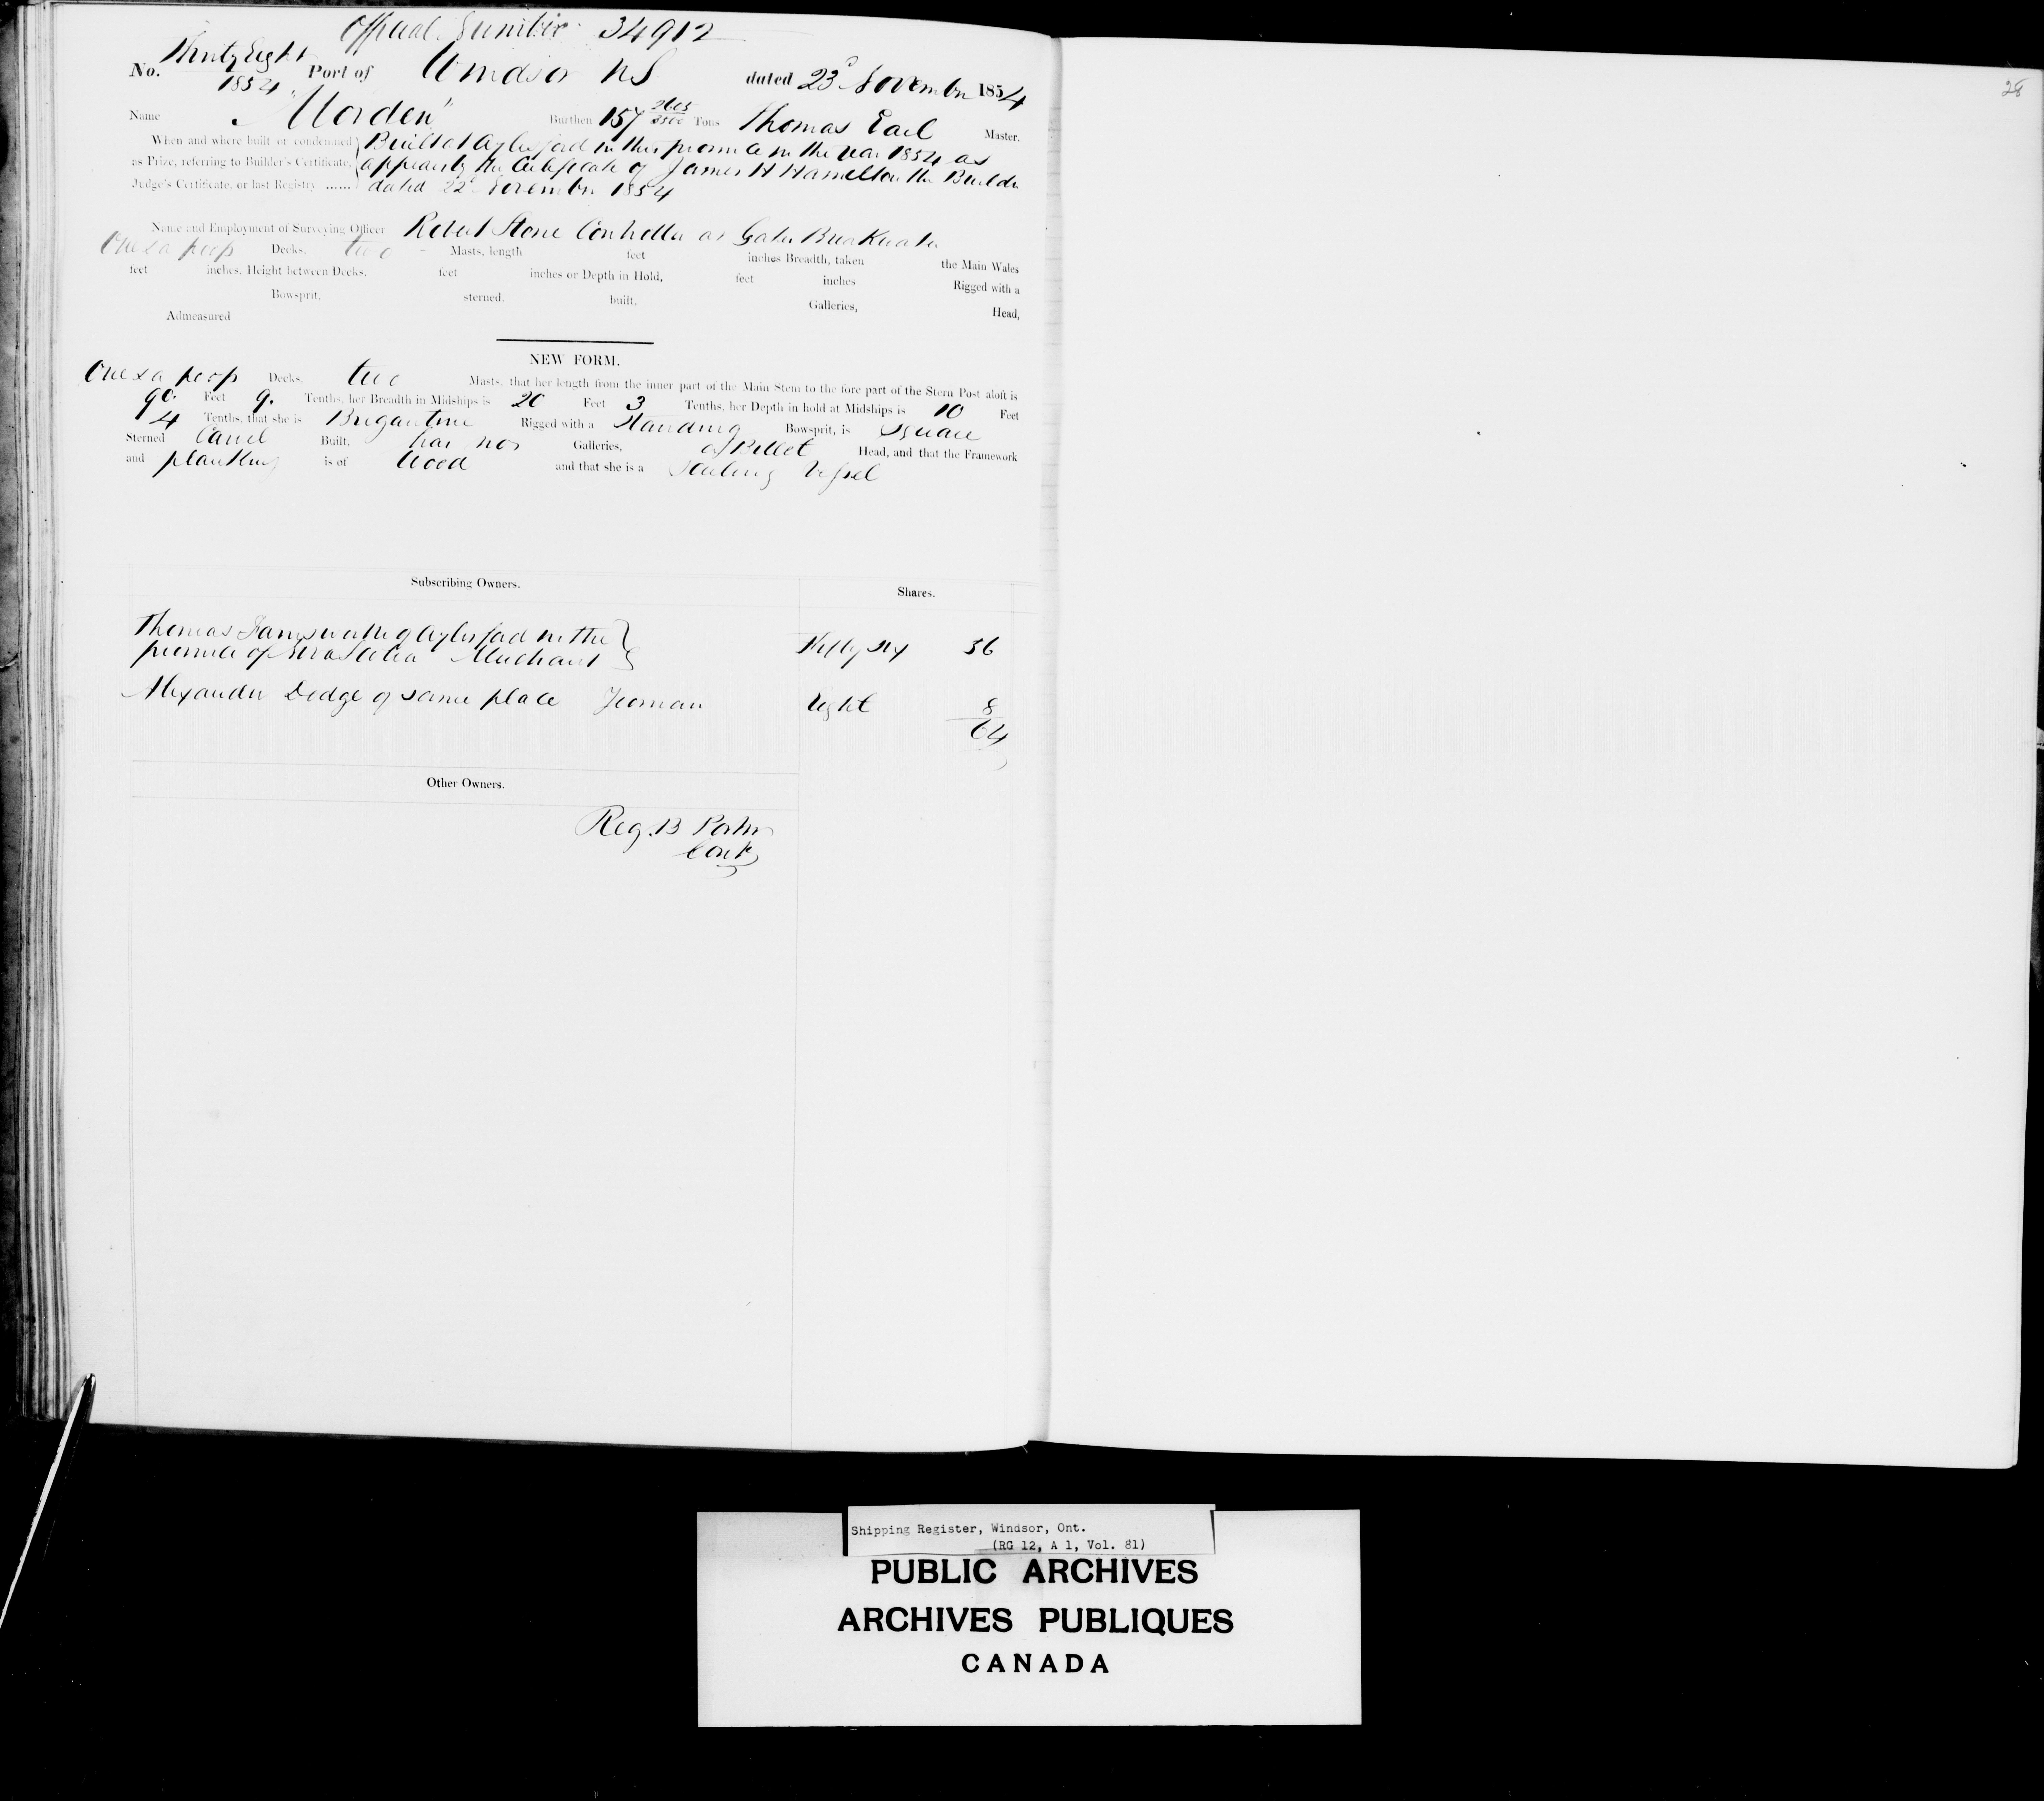 Official Number 34912
No. Thirty Eight 1854 Port of Windsor NS dated 23d November 1854
Name "Morden" Burthen 157 2605/3500 Tons Thomas Earl Master.
When and where built or condemned as Prize, referring to Builder's Certificate, Judge's Certificate, or last Registry ......
Built at Aylesford in this province in the year 1854 as
appears by the Certificate of James H Hamelton the Builder
dated 22d November 1854
Name and Employment of Surveying Officer Robert Stone Controller at Gates Breakwater
One & a poop Decks, two Masts, length feet inches Breadth, taken the Main Wales
feet inches, Height between Decks, feet inches or Depth in Hold, feet inches Rigged with a
Bowsprit, sterned, built, Galleries, Head,
Admeasured
NEW FORM.
One & a poop Decks, two Masts, that her length from the inner part of the Main Stem to the fore part of the Stern Post aloft is
90 Feet 9 Tenths, her Breadth in Midships is 20 Feet 3 Tenths, her Depth in hold at Midships is 10 Feet
4 Tenths, that she is Brigantine Rigged with a Standing Bowsprit, is Square
Sterned Carvel Built, has no Galleries, a Billet Head, and that the Framework
and planking is of Wood and that she is a Sailing Vessel
Subscribing Owners. Shares.
Thomas Farnsworth of Aylesford in the
province of Nova Scotia Merchant Fifty six 56
Alexander Dodge of same place Yeoman Eight 8
64
Other Owners.
Reg. B Porter
Contr
28
Shipping Register, Windsor, Ont.
(RG 12, A 1, Vol. 81)
PUBLIC ARCHIVES
ARCHIVES PUBLIQUES
CANADA